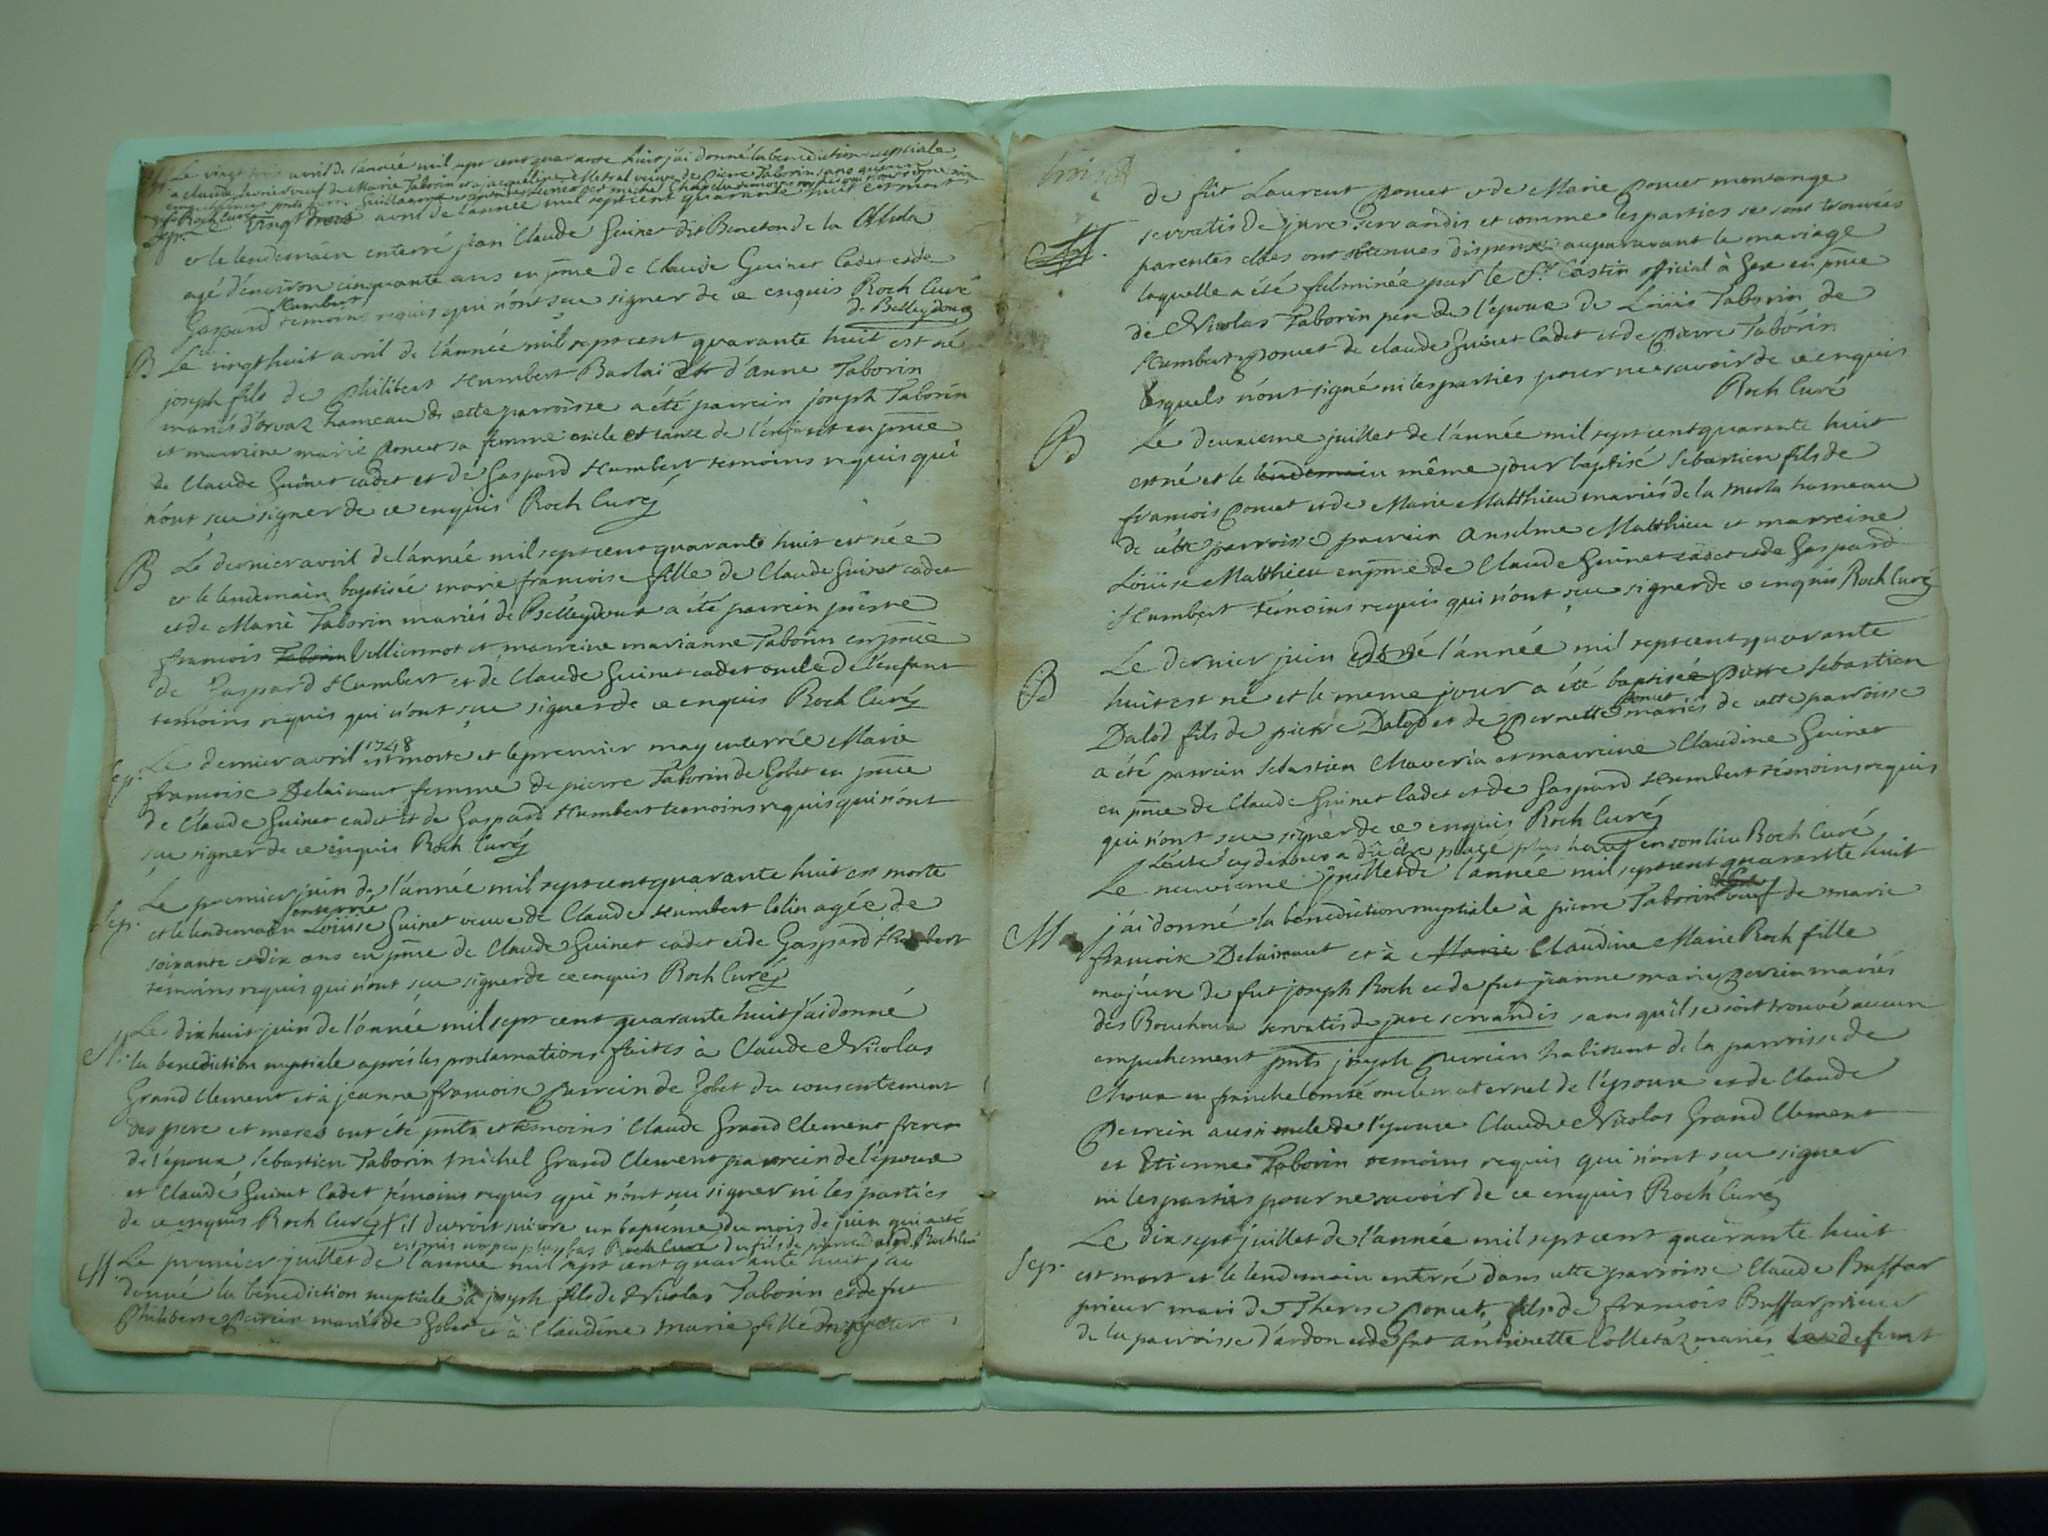 M. Le vingt trois avril de l'année mil sept cent quarante huit j'ai donné la benediction nuptiale
a claude veuf de Marie Taborin et a jacqueline Metral veuve de pierre Taborin sans
et Roch Curé
Sep. Le vingt trois avril de l'année mil sept cent quarante huit est mort
et le lendemain enterré jean Claude Guinet dit Beneton de la
agé d'environ cinquante ans en pnce de Claude Guinet Cadet et de
Humbert
Gaspard temoins requis qui n'ont scu signer de ce enquis Roch Curé
de Belleydoux
B Le vingt huit avril de l'année mil sept cent quarante huit est né
joseph fils de philibert Humbert Barlai et d'anne Taborin
mariés d'orvaz hameau de cette parroisse a été parrein joseph Taborin
et marreine marie poncet sa femme oncle et tante de l'enfant en pnce
de Claude Guinet cadet et de Gaspard Humbert temoins requis qui
n'ont scu signer de ce enquis Roch Curé
B Le dernier avril de l'année mil sept cent quarante huit est née
et le lendemain baptisée marie francoise fille de Claude Guinet cadet
et de Marie Taborin mariés de Belleydoux a été parrein pierre
francois Taborin Vulliermot et marreine marianne Taborin en pnce
de Gaspard Humbert et de Claude Guinet cadet oncle de l'enfant
temoins requis qui n'ont scu signer de ce enquis Roch Curé
1748
Sep. Le dernier avril est morte et le premier may enterrée Marie
francoise Delainaut femme de pierre Taborin de Gobet en pnce
de Claude Guinet cadet et de Gaspard Humbert temoins requis qui n'ont
scu signer de ce enquis Roch Curé
Le premier juin de l'année mil sept cent quarante huit est morte
enterrée
Sep. et le lendemain Loüise Guinet veuve de Claude Humbert Colin agée de
soixante et dix ans en pnce de Claude Guinet cadet et de Gaspard Humbert
temoins requis qui n'ont scu signer de ce enquis Roch Curé
M. Le dix huit juin de l'année mil sept cent quarante huit j'ai donné
la benediction nuptiale après les proclamations faites à Claude Nicolas
Grand Clement et à jeanne francoise perrein de Gobet du consentement
des pere et meres ont été pnts et temoins Claude Grand Clement frere
de l'epoux Sebastien Taborin michel Grand Clement parrein de l'epoux
et Claude Guinet Cadet temoins requis qui n'ont scu signer ni les parties
de ce enquis Roch Curé il devroit suivre un baptême du mois de juin qui a été
mis un peu plus bas Roch Curé du fils de pierre Dalod Roch Curé
M. Le premier juillet de l'année mil sept cent quarante huit j'ai
donné la benediction nuptiale à joseph fils de Nicolas Taborin et de fut
Philiberte perrein mariés de Gobet et à Claudine marie fille majeure
trois
de fût Laurent poncet et de Marie poncet montange
servatis de jure servandis et comme les parties se sont trouvées
parentes elles ont obtenues dispense auparavant le mariage
laquelle a été fulminée par le Sr Castin official à Gex en pnce
de Nicolas Taborin pere de l'epoux de Loüis Taborin de
Humbert poncet de claude Guinet Cadet et de pierre Taborin
lesquels n'ont signé ni les parties pour ne savoir de ce enquis
Roch Curé
B Le deuxieme juillet de l'année mil sept cent quarante huit
est né et le lendemain même jour baptisé Sebastien fils de
francois poncet et de Marie Matthieu mariés de la hameau
de cette parroisse parrein Anselme Matthieu et marreine
Loüise Matthieu en pnce de Claude Guinet cadet et de Gaspard
Humbert temoins requis qui n'ont scu signer de ce enquis Roch Curé
B Le dernier juin de l'année mil sept cent quarante
huit est né et le meme jour a été baptisé pierre Sebastien
poncet
Dalod fils de pierre Dalod et de pernette mariés de cette parroisse
a été parrein Sebastien Chaveria et marreine Claudine Guinet
en pnce de Claude Guinet Cadet et de Gaspard Humbert temoins requis
qui n'ont scu signer de ce enquis Roch Curé
L'acte cy dessus a dû être plus haut en son lieu Roch Curé
Le neuvieme juillet de l'année mil sept cent quarante huit
M j'ai donné la benediction nuptiale à pierre Taborin veuf de marie
francoise Delainaut et à Marie Claudine Marie Roch fille
majeure de fut joseph Roch et de fut jeanne marie perrein mariés
des Bouchoux servatis de jure servandis sans qu'il se soit trouvé aucun
empechement pnts joseph perrein habitant de la parroisse de
Choux en franche Comté oncle maternel de l'epouse et de Claude
perrein aussi oncle de l'epouse Claude Nicolas Grand Clement
et Etienne Taborin temoins requis qui n'ont scu signer
ni les parties pour ne savoir de ce enquis Roch Curé
Le dix sept juillet de l'année mil sept cent quarante huit
Sep. est mort et le lendemain enterré dans cette parroisse Claude Buffar
prieur mari de Therese poncet, fils de francois Buffar prieur
de la parroisse d'ardon et de fut antoinette Colletaz mariés